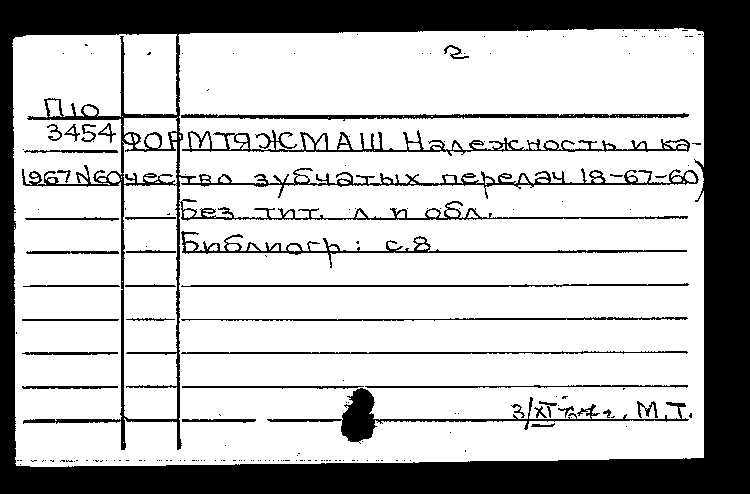 2
П10
3454 ФОРМТЯЖМАШ. Надежность и ка-
1967 N60 чество зубчатых передач 18-67-60)
Без тит. л. и обл.
Библиогр.: с.8.
3/XI М.Т.